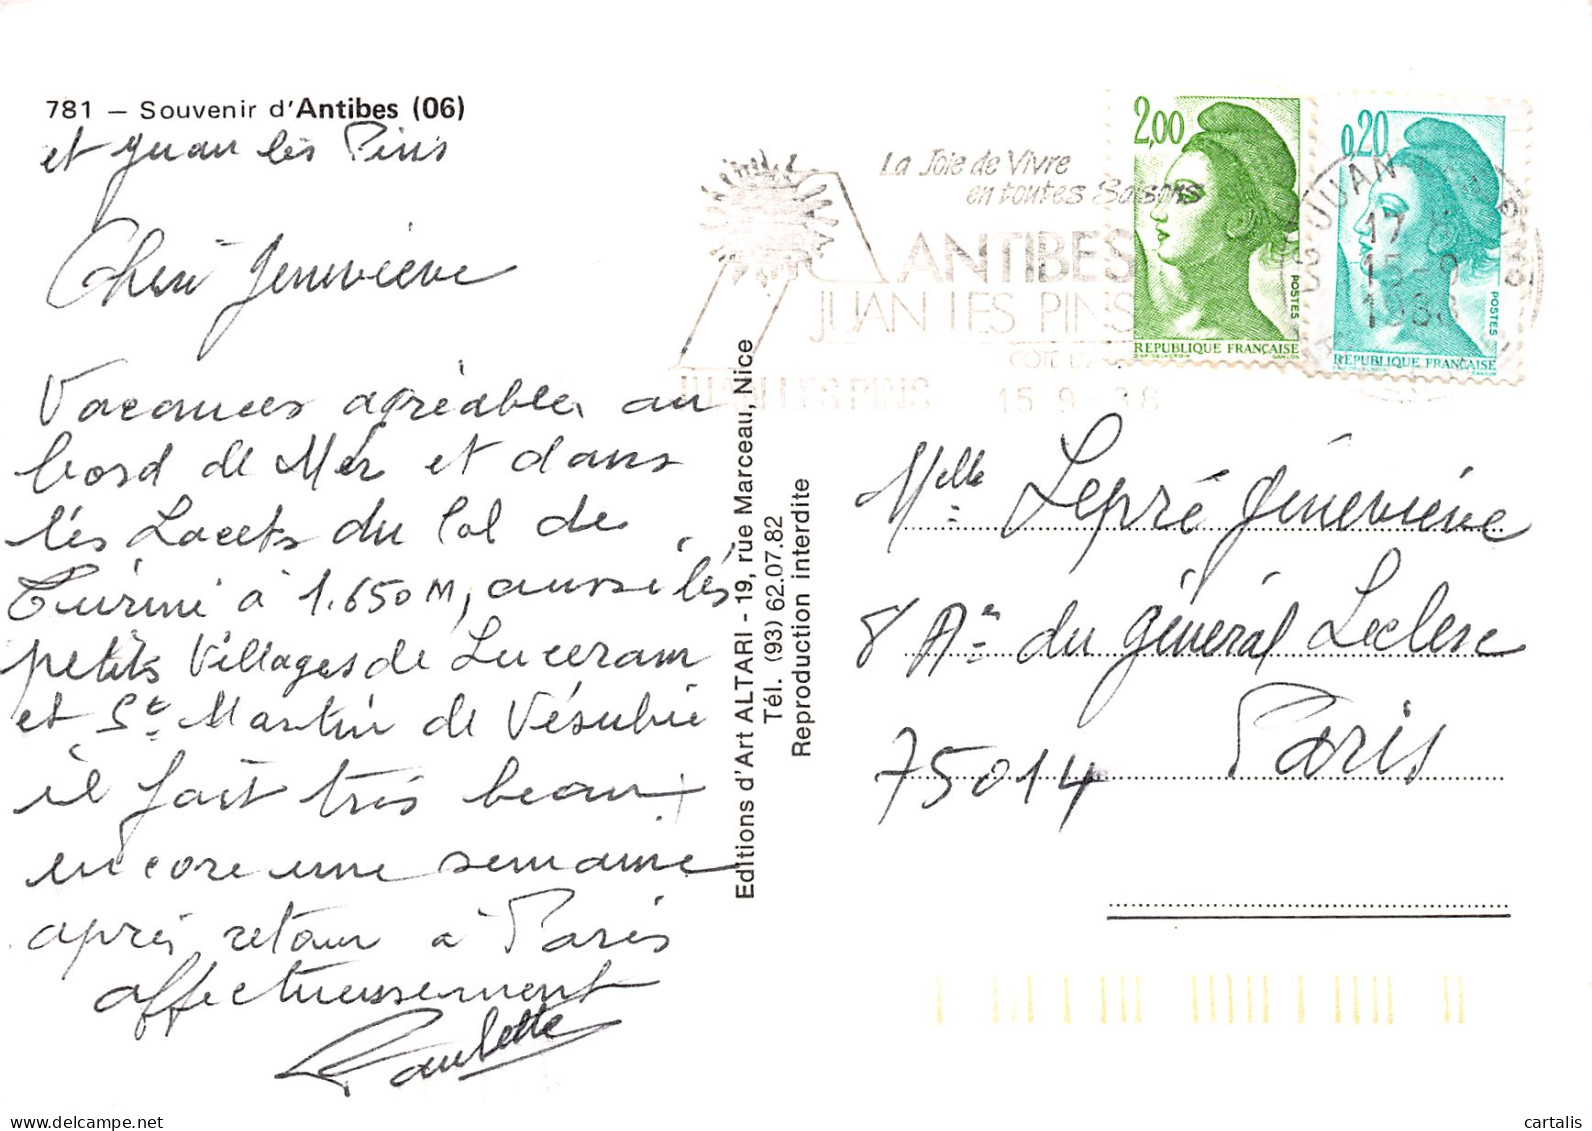 781 – Souvenir d'Antibes (06)
et Juan lès Pins
Cheri Geneviève
Vacances agréables au
bord de Mer et dans
lés Lacets du Col de
Türini à 1.650 M, aussi lés
petits Villages de Luceram
et St Martin de Vésubie
il fait très beau +
encore une semaine
après retour à Paris
affectueusement
Paulette
Editions d'Art ALTARI - 19, rue Marceau, Nice
Tél. (93) 62.07.82
Reproduction interdite
La Joie de Vivre
en toutes Saisons
ANTIBES
JUAN LES PINS
JUAN LES PINS 15 9 88
2,00
POSTES
REPUBLIQUE FRANÇAISE
0,20
POSTES
REPUBLIQUE FRANÇAISE
17 H
15-9
1988
Melle Lepré Geneviève
8 Av du Général Leclerc
75014 Paris
www.delcampe.net
cartalis